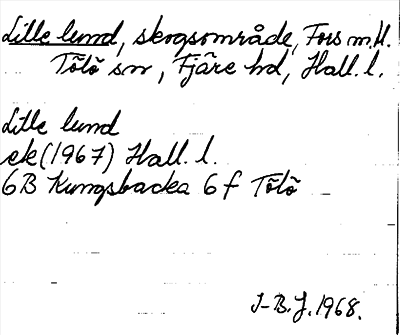 Lille lund, skogsområde, Fors m.fl.
Tölö sn, Fjäre hd, Hall. l.
Lille lund
ek (1967) Hall. l.
6B Kungsbacka 6f Tölö
I-B.J. 1968.